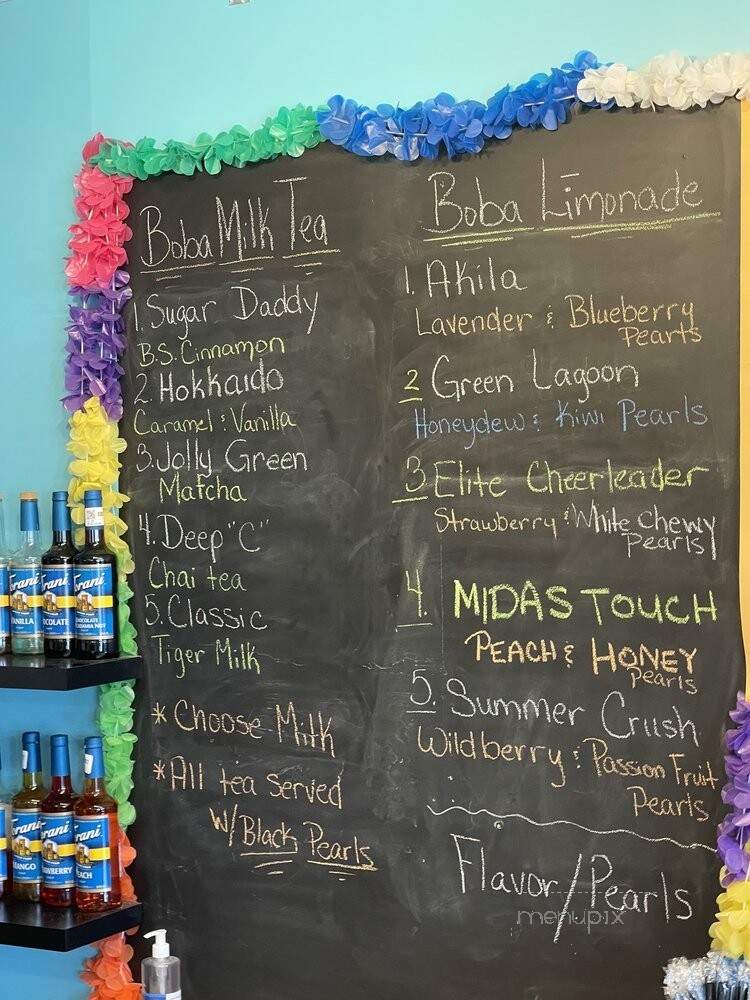 Boba Milk Tea
1. Sugar Daddy
B.S. Cinnamon
2. Hokkaido
Caramel & Vanilla
3. Jolly Green
Matcha
4. Deep "C"
Chai tea
5. Classic
Tiger Milk
* Choose Milk
* All tea served
w/ Black Pearls
Boba Limonade
1. Akila
Lavender & Blueberry
Pearls
2 Green Lagoon
Honeydew & Kiwi Pearls
3 Elite Cheerleader
Strawberry & White Chewy
Pearls
4. MIDAS TOUCH
PEACH & HONEY
Pearls
5. Summer Crush
Wildberry & Passion Fruit
Pearls
Flavor/Pearls
menupix
Torani
VANILLA
Torani
CHOCOLATE
Torani
CHOCOLATE
MACADAMIA NUT
Torani
MANGO
Torani
STRAWBERRY
Torani
PEACH